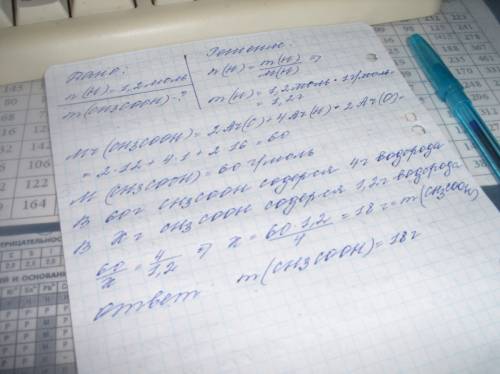 Дано:
n(H)=1,2 моль
m(CH3COOH)-?
Решение:
n(H)=m(H)/M(H) ⇒
m(H)=1,2моль·1г/моль=
=1,2г
Mr(CH3COOH)=2Ar(C)+4Ar(H)+2Ar(O)=
=2·12+4·1+2·16=60
M(CH3COOH)=60г/моль
В 60г CH3COOH содерж 4г водорода
В Xг CH3COOH содерж 1,2г водорода
60/x=4/1,2 ⇒ x=60·1,2/4=18г=m(CH3COOH)
Ответ m(CH3COOH)=18г